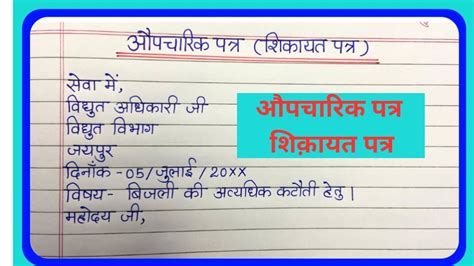 औपचारिक पत्र (शिकायत पत्र)
सेवा में,
विद्युत अधिकारी जी
विद्युत विभाग
जयपुर
दिनाँक - 05/जुलाई/20XX
विषय- बिजली की अत्यधिक कटौती हेतु।
महोदय जी,
औपचारिक पत्र
शिक़ायत पत्र